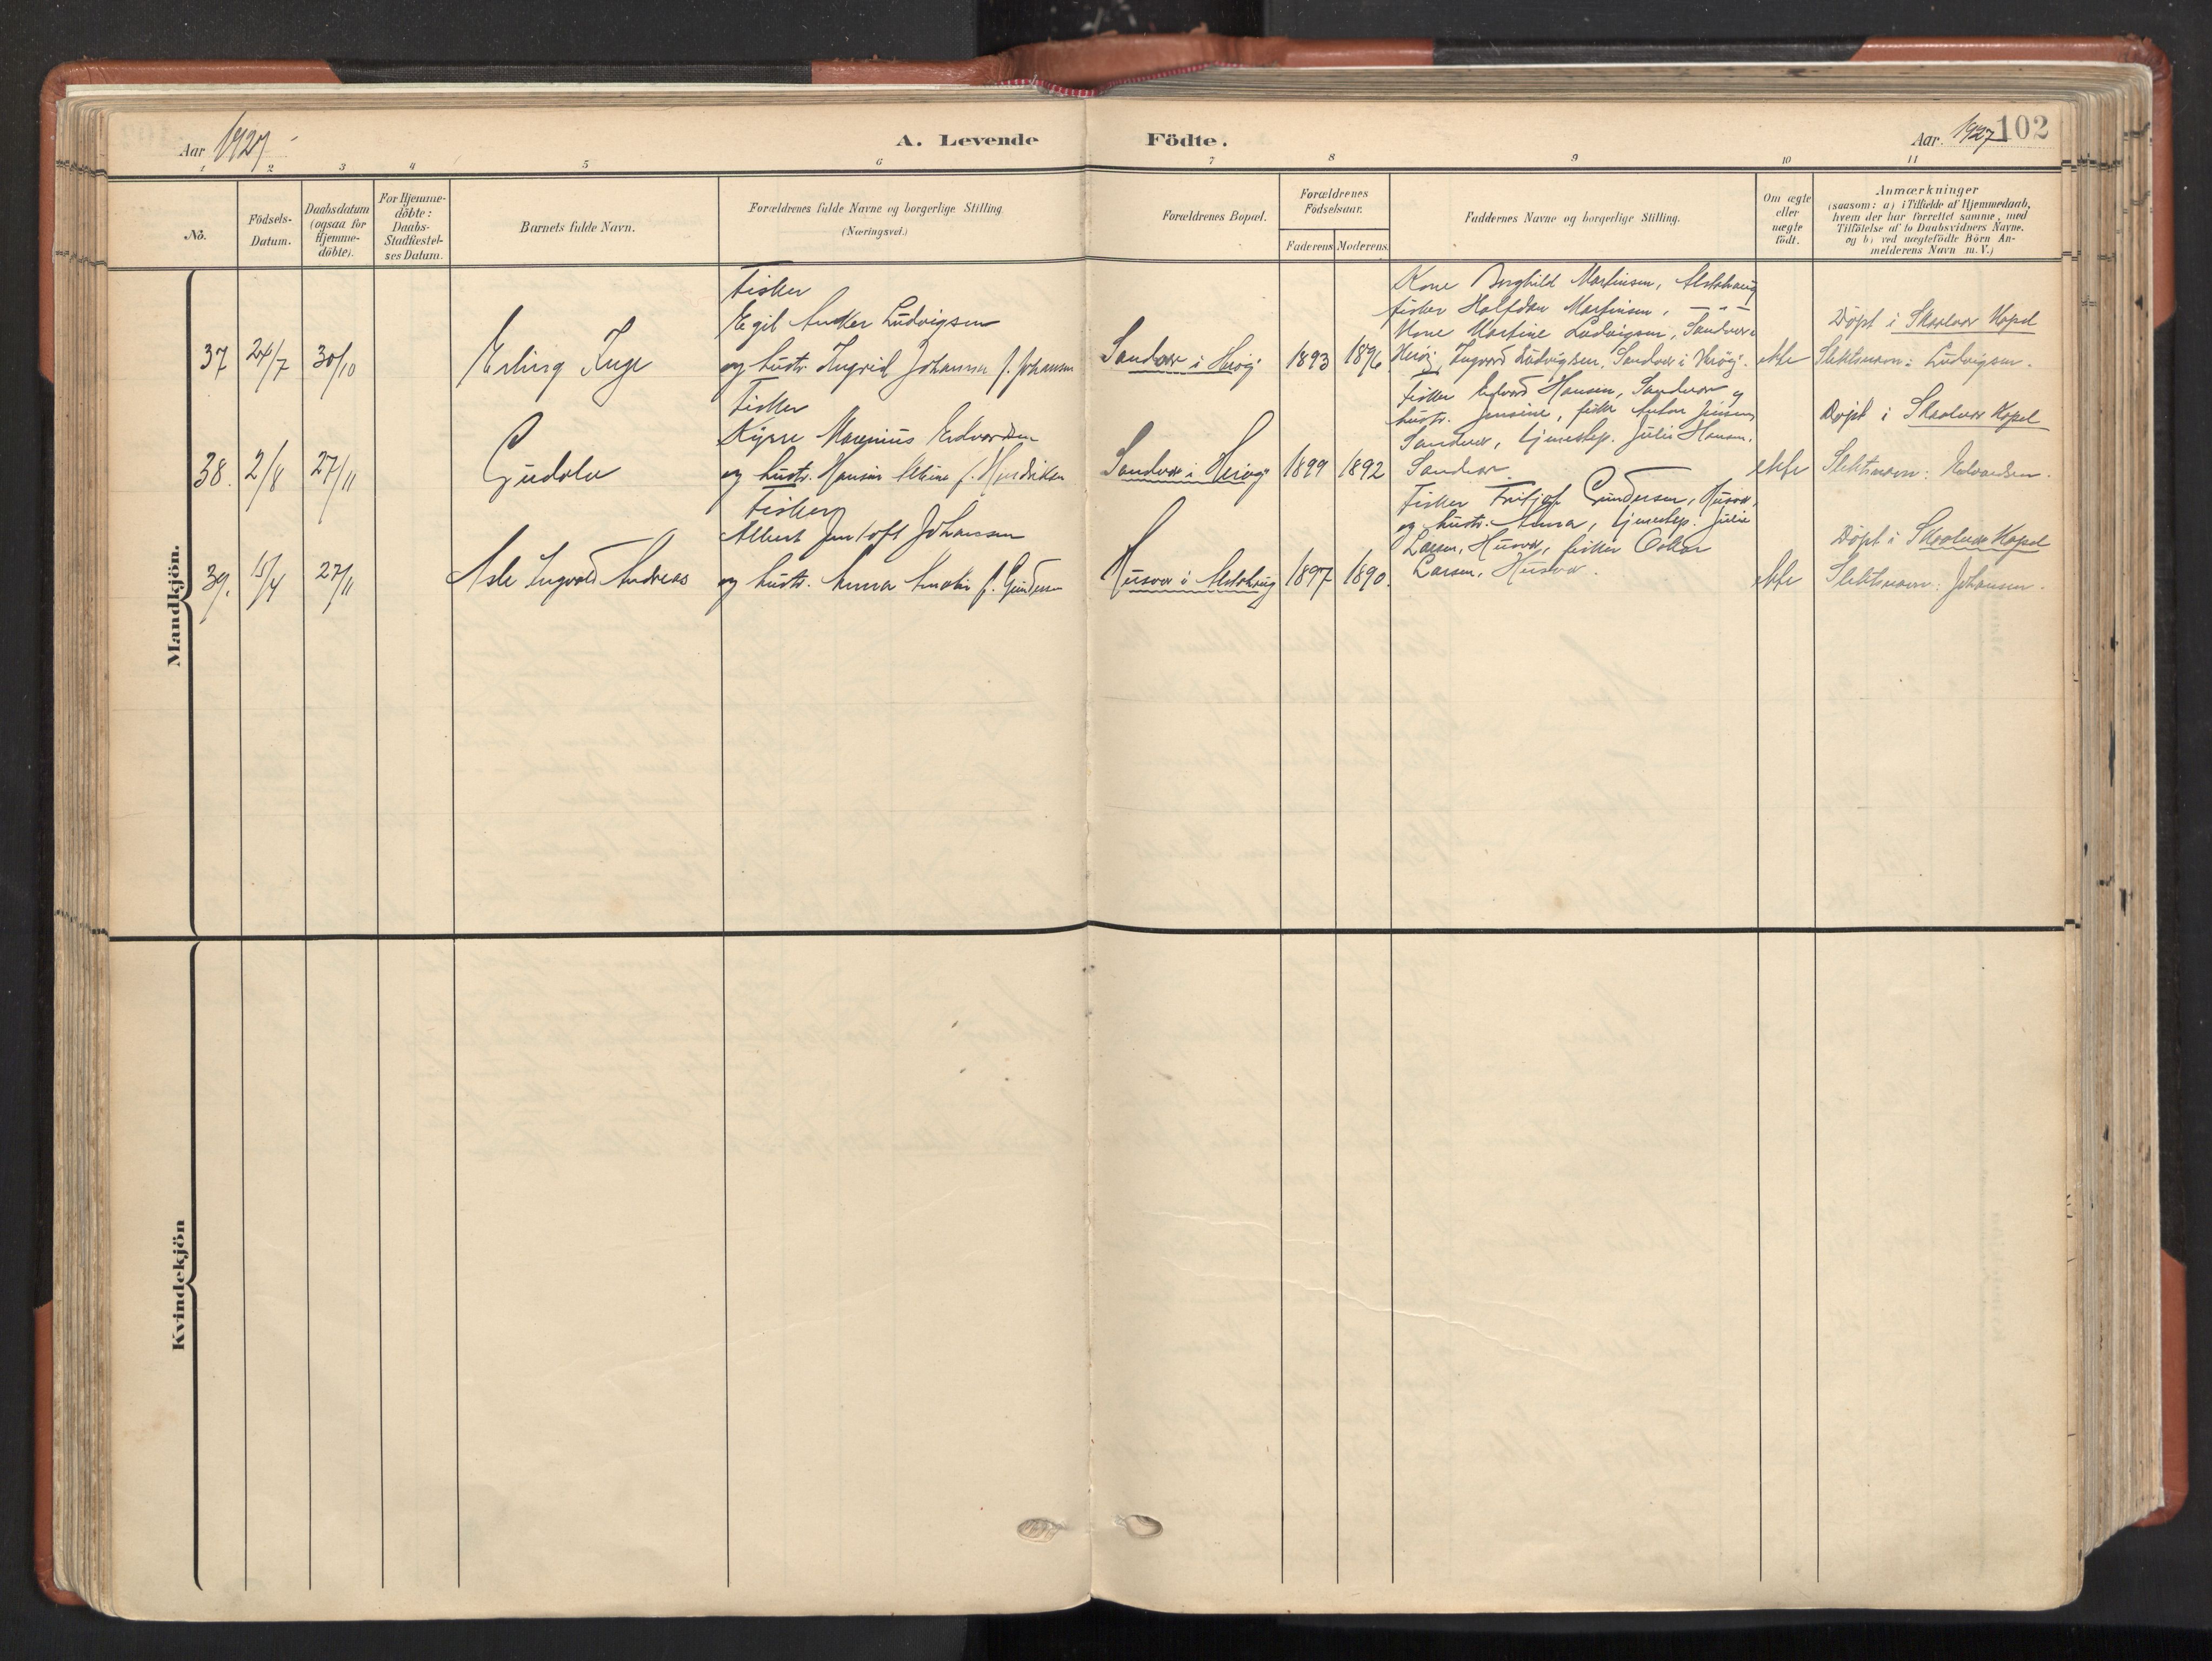 Aar 1927.
A. Levende Födte.
Aar. 1927
102
1 2 3 4 5 6 7 8 9 10 11
No.
Födsels-
Datum.
Daabsdatum
(ogsaa for
Hjemme-
döbte).
For Hjemme-
döbte:
Daabs-
Stadfæstel-
ses Datum.
Barnets fulde Navn.
Forældrenes fulde Navne og borgerlige Stilling
(Næringsvei.)
Forældrenes Bopæl.
Forældrenes
Födselsaar.
Faderens Moderens
Faddernes Navne og borgerlige Stilling.
Om ægte
eller
uægte
födt.
Anmærkninger
(saasom: a) i Tilfælde af Hjemmedaab,
hvem der har forrettet samme, med
Tilföielse af to Daabsvidners Navne.
og b) ved uægtefödte Börn An-
melderens Navn m. V.)
Mandkjön.
37
24/7
30/10
Erling Inge
Fisker
Egil Anker Ludvigsen
og hustr. Ingrid Johanna f. Johansen
Sandvær i Herøy
1893
1896
Kone Borghild Martinsen, Alstahaug
fisker Halfdan Martinsen, - " -
Kone Martine Ludvigsen, Sandvær i
Herøy, Ingvard Ludvigsen, Sandvær i Herøy.
ekte
Döpt i Skaalvær Kapel
Slektsnavn: Ludvigsen.
38.
2/8
27/11
Gudolv
Fisker
Kyrre Marenius Edvardsen
og hustr. Hansine f. Hendriksen
Sandvær i Herøy
1899
1892
Fisker Edvard Hansen, Sandvær og
hustr. Jensine, fisker Anton Jensen
Sandvær, tjenestep. Julie Hansen,
Sandvær
ekte
Döpt i Skaalvær Kapel
Slektsnavn: Edvardsen.
39.
15/4
27/11
Asle Ingvald Andreas
Fisker
Albert Jentoft Johansen
og hustr. Anna Amalie f. Gundersen
Husvær i Alstahaug
1897
1890.
Fisker Fritjof Gundersen, Husvær,
og hustr. Anna, tjenestep. Julie
Larsen, Husvær, fisker Oskar
Larsen, Husvær.
ekte
Döpt i Skaalvær Kapel
Slektsnavn: Johansen.
Kvindekjön